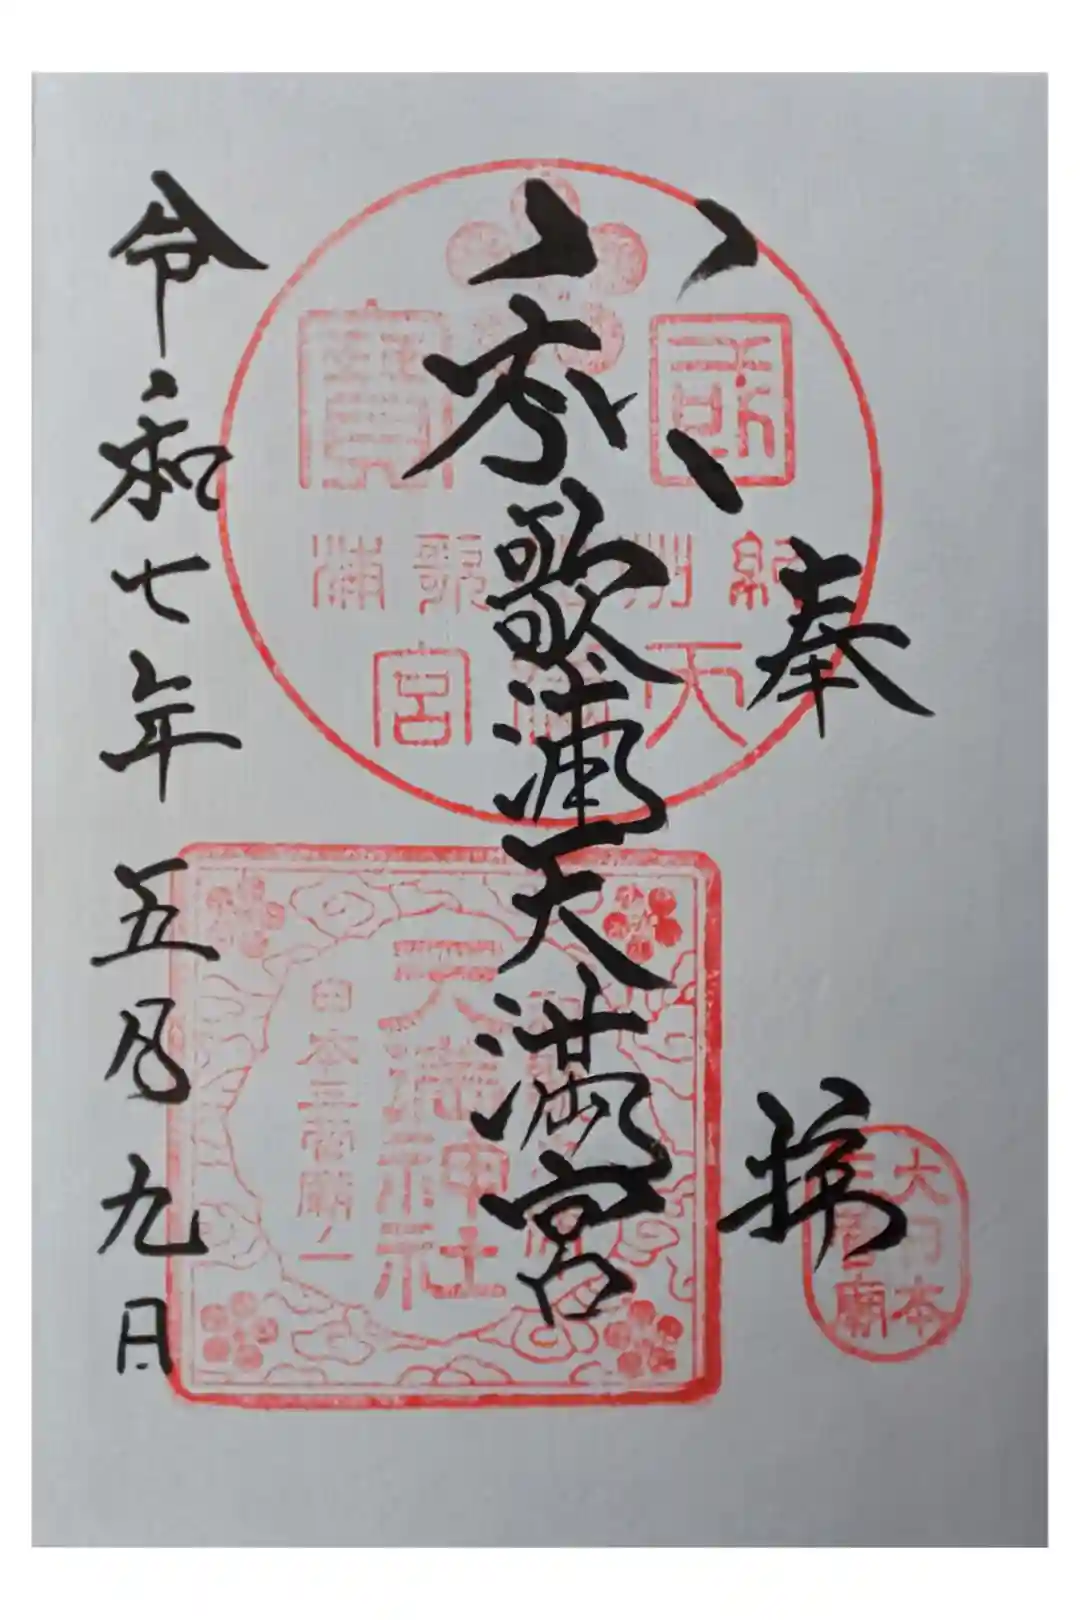 奉
拝
歌浦天満宮
令和七年五月九日
國寶
紀州和歌浦
天満宮
天満神社
日本三菅廟ノ一
大日本
三菅廟